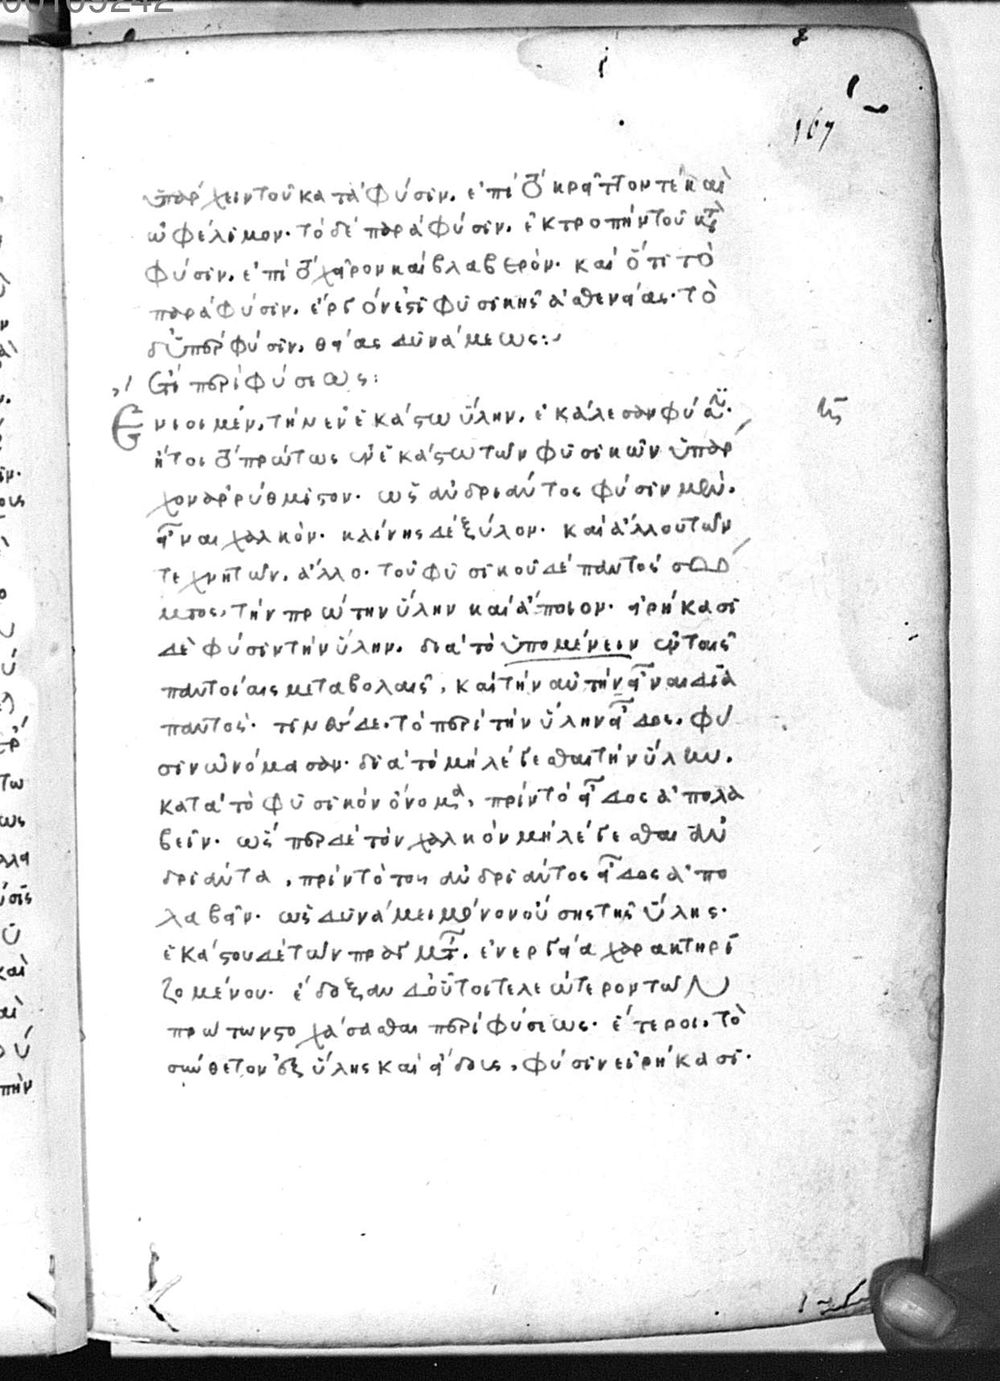 167
ὑπάρχειν τοῦ κατὰ φύσιν. ἐπὶ τὸ κρεῖττόν τε καὶ
ὠφέλιμον. τὸ δὲ παρὰ φύσιν. ἐκτροπὴν τοῦ κατὰ
φύσιν. ἐπὶ τὸ χεῖρον καὶ βλαβερόν. καὶ ὅτι τὸ
παρὰ φύσιν. ἔργόν ἐστι φυσικῆς ἀσθενείας. τὸ
δ' ὑπὲρ φύσιν. θείας δυνάμεως:
Ἔτι περὶ φύσεως:
Ἔνιοι μὲν, τὴν ἐν ἑκάστω ὕλην. ἐκάλεσαν φύσιν.
ἤτοι τὸ πρώτως ἐν ἑκάστω τῶν φυσικῶν ὑπάρ
χον ἀρρύθμιστον. ὡς ἀνδριάντος φύσιν μὲν.
εἶναι χαλκόν. κλίνης δὲ ξύλον. καὶ ἄλλου τῶν
τεχνητῶν. ἄλλο. τοῦ φυσικοῦ δὲ παντὸς σώ
ματος, τὴν πρώτην ὕλην καὶ ἄποιον. εἰρήκασι
δὲ φύσιν τὴν ὕλην. διὰ τὸ ὑπομένειν ἐν ταῖς
παντοίαις μεταβολαῖς, καὶ τὴν αὐτὴν εἶναι διὰ
παντός. τινὲς δὲ. τὸ περὶ τὴν ὕλην εἶδος. φύ
σιν ὠνόμασαν. διὰ τὸ μὴ λέγεσθαι τὴν ὕλην.
κατὰ τὸ φυσικὸν ὄνομα, πρὶν τὸ εἶδος ἀπολα
βεῖν. ὥσπερ δὲ τὸν χαλκὸν μὴ λέγεσθαι ἀν
δριάντα, πρὶν τὸ τοῦ ἀνδριάντος εἶδος ἀπο
λαβεῖν. ὡς δυνάμει μόνον οὔσης τῆς ὕλης.
ἑκάστου δὲ τῶν πραγμάτων. ἐνεργεία χαρακτηρι
ζομένου. ἔδοξαν δ' οὗτοι τελεώτερον τῶν
πρώτων στοχάσασθαι περὶ φύσεως. ἕτεροι. τὸ
σύνθετον ἐξ ὕλης καὶ εἴδους, φύσιν εἰρήκασι.